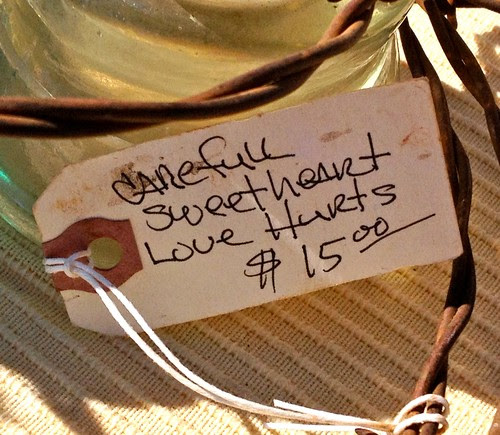 CAREfull
sweetheart
Love Hurts
$ 15.00